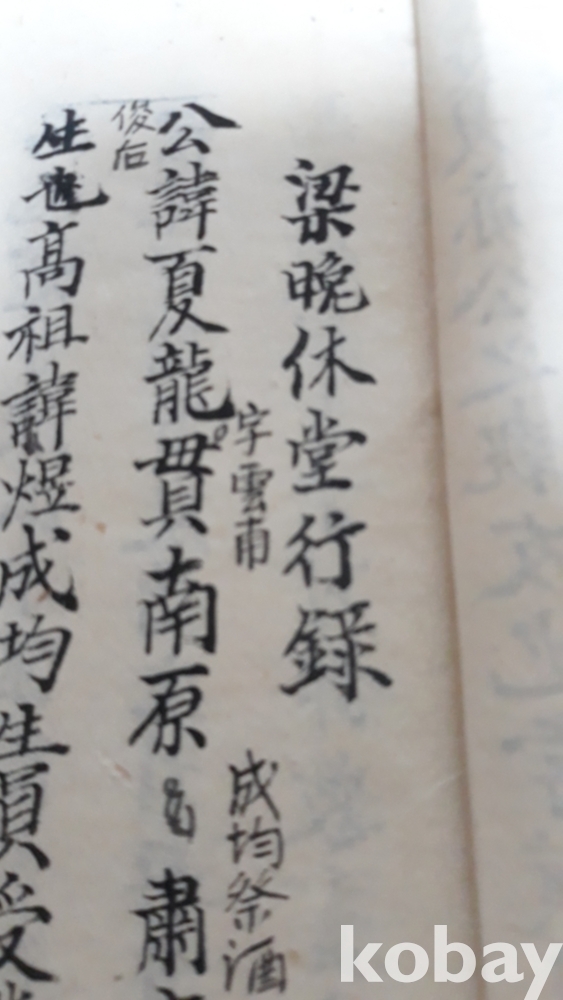 梁晚休堂行錄
公諱夏龍貫南原 肅
字雲甫
成均祭酒
俊后
生 高祖諱煜成均生員受
kobay